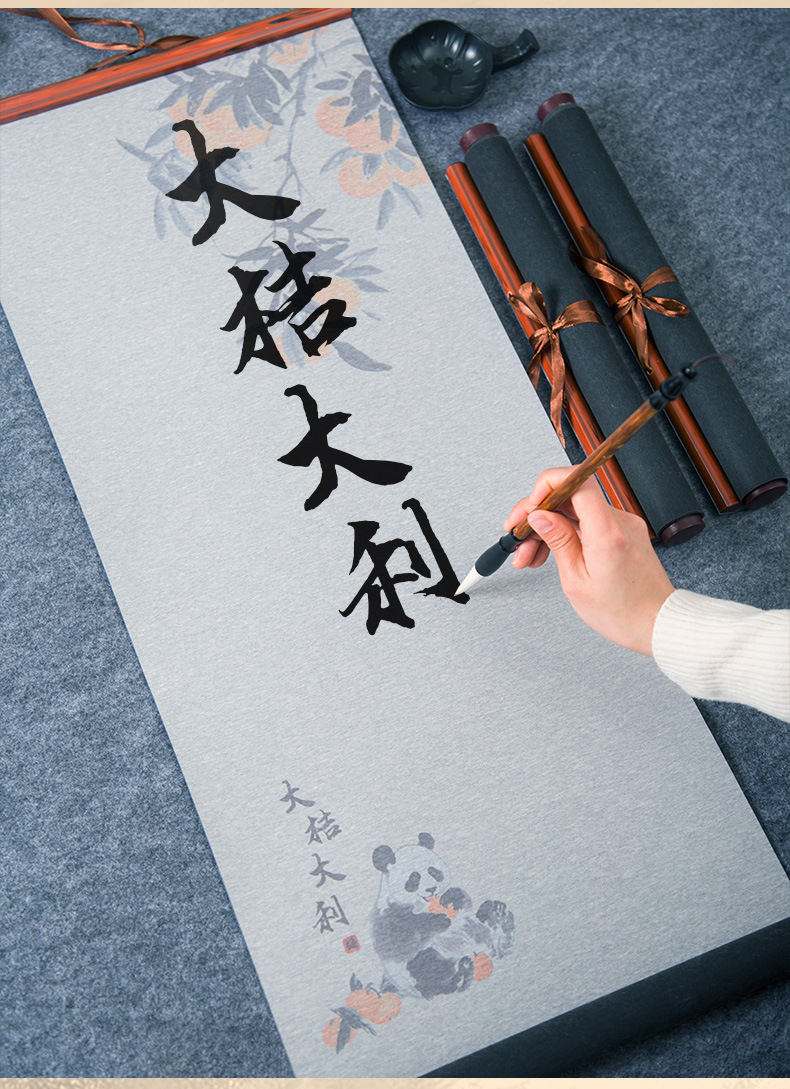 大桔大利
大桔大利